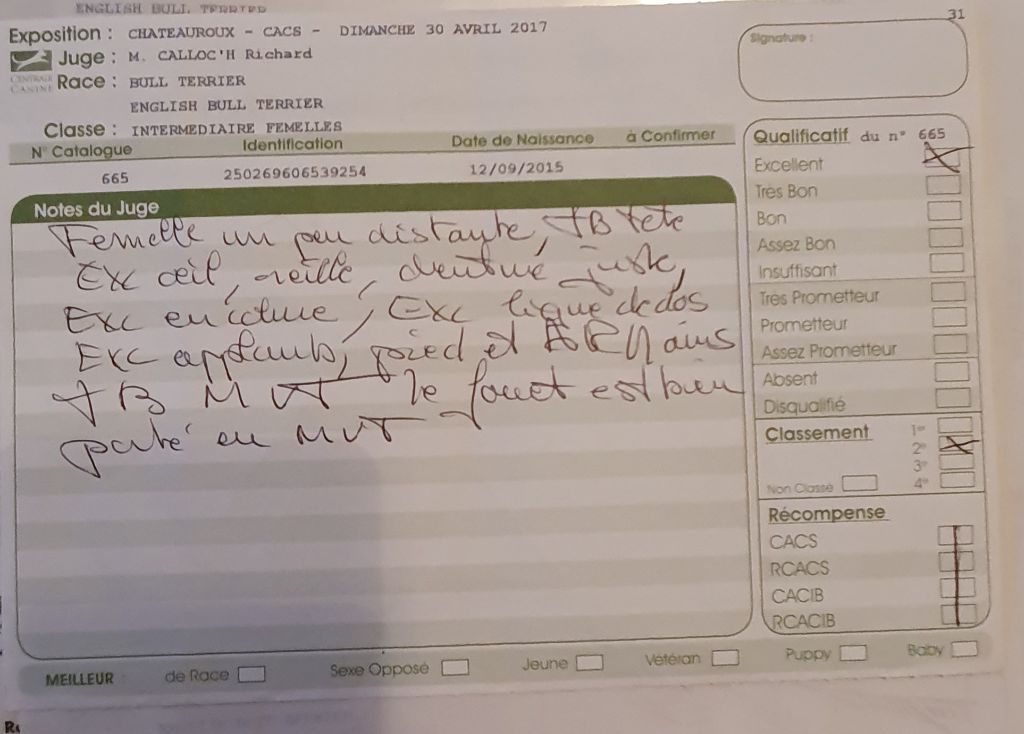 ENGLISH BULL TERRIER
31
Exposition : CHATEAUROUX - CACS - DIMANCHE 30 AVRIL 2017
Juge : M. CALLOC'H Richard
CENTRALE CANINE
Race : BULL TERRIER
ENGLISH BULL TERRIER
Classe : INTERMEDIAIRE FEMELLES
Signature :
N° Catalogue Identification Date de Naissance à Confirmer
665 250269606539254 12/09/2015
Notes du Juge
Femelle un peu distante, TB tête
Exc œil, oreille, denture juste,
Exc encolure, Exc ligne de dos
Exc applombs, pied et
TB MVT le fouet est bien
porté en MVT
Qualificatif du n° 665
Excellent
Très Bon
Bon
Assez Bon
Insuffisant
Très Prometteur
Prometteur
Assez Prometteur
Absent
Disqualifié
Classement 1er
2e
3e
Non Classé 4e
Récompense
CACS
RCACS
CACIB
RCACIB
MEILLEUR : de Race Sexe Opposé Jeune Vétéran Puppy Baby